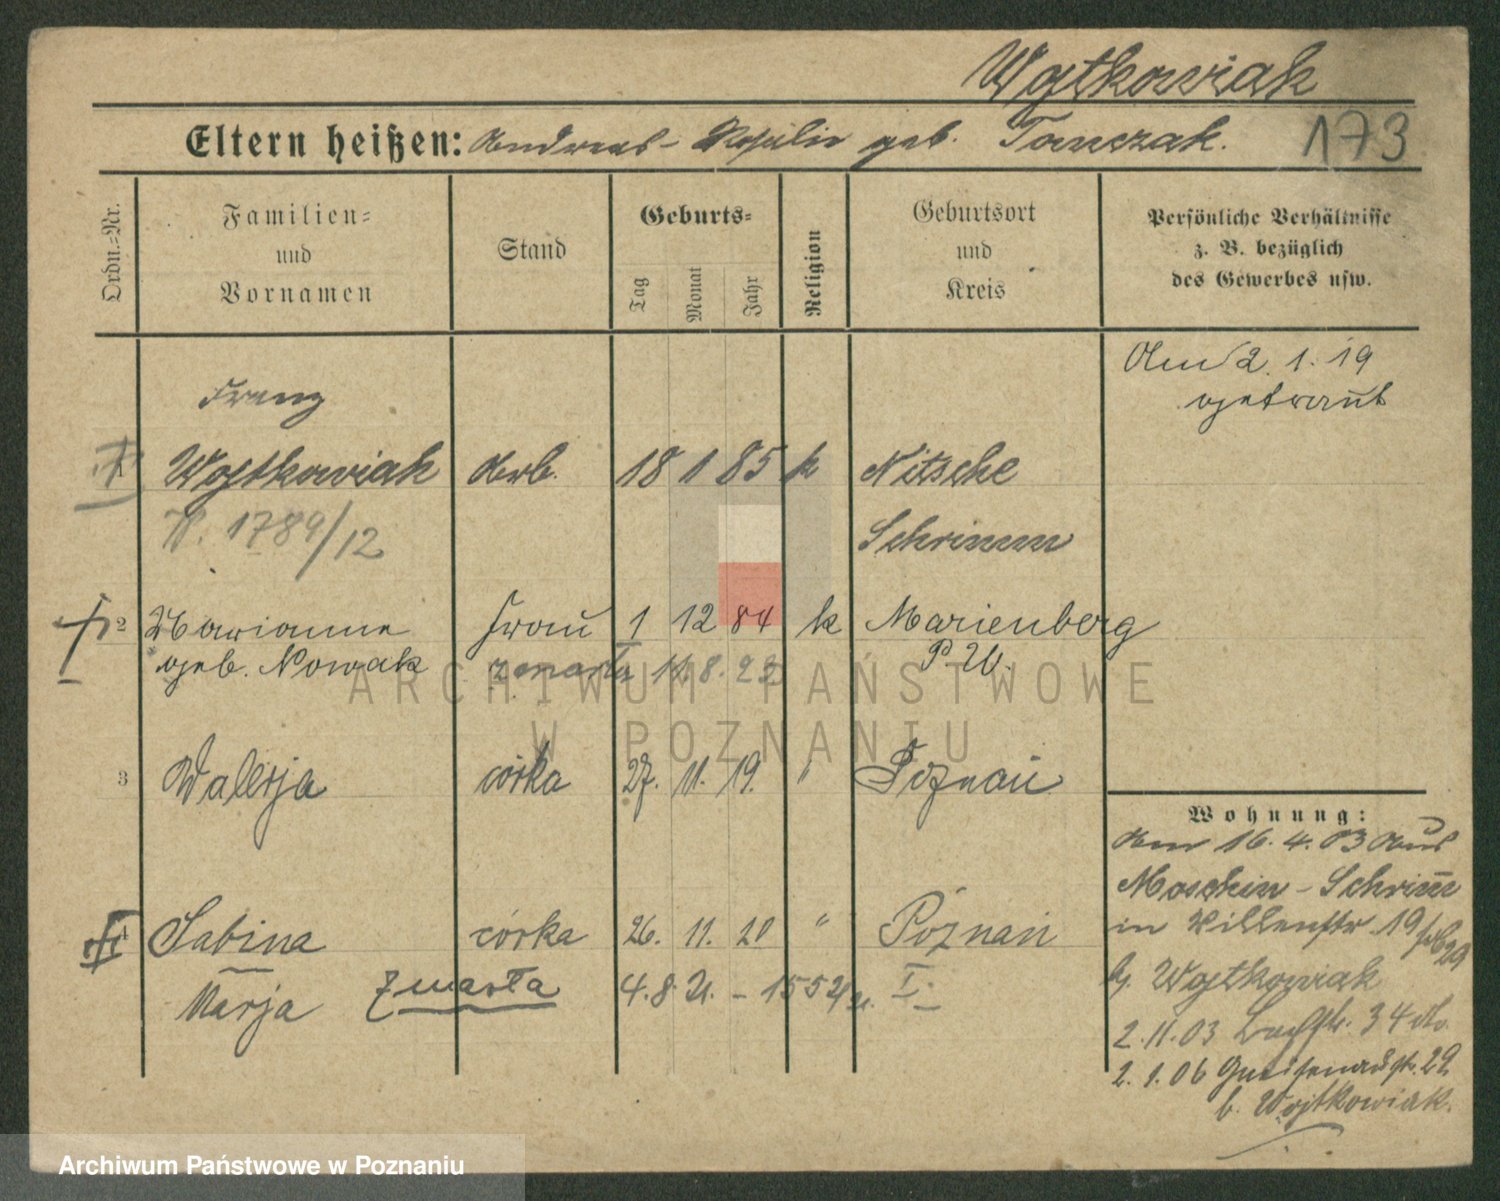 Wojtkowiak
Eltern heißen: Andreas - Rosalie geb. Tomczak.
173
Ordn.=Nr.
Familien=
und
Vornamen
Stand
Geburts=
Tag
Monat
Jahr
Religion
Geburtsort
und
Kreis
Persönliche Verhältnisse
z. B. bezüglich
des Gewerbes usw.
Am 2. 1. 19
getraut
Franz
1 Wojtkowiak Arb. 18 1 85 k Nitsche
1789/12 Schrimm
2 Marianne Frau 1 12 84 k Marienberg
geb. Nowak zmarła 8. P. W.
3 Walerja córka 27. 11. 19. " Poznań
Wohnung:
Am 16. 4. 03 aus
Moschin - Schrimm
in 19
4 Sabina córka 26. 11. 20 " Poznań
b. Wojtkowiak
Marja zmarła 4. 8. 21. - 1552/21. I.
2. 11. 03 34
2. 1. 06 Gneisenaustr. 29
b. Wojtkowiak.
ARCHIWUM PAŃSTWOWE
W POZNANIU
Archiwum Państwowe w Poznaniu